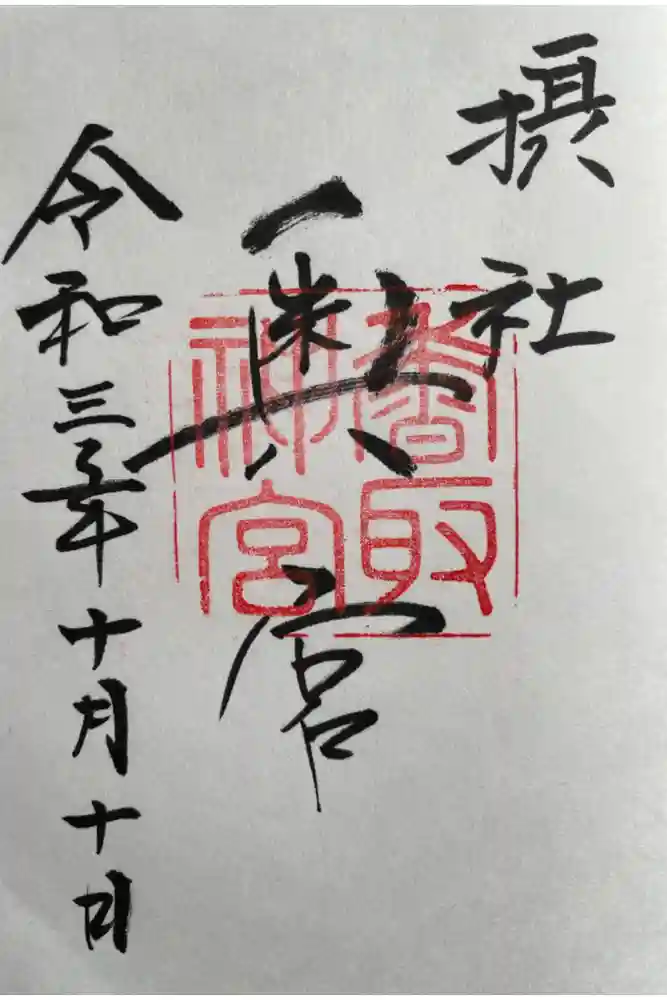 摂社
奥宮
香取
神宮
令和三年十月十日